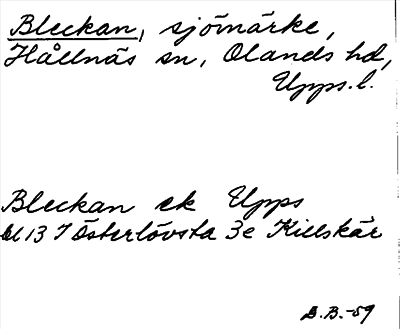 Bleckan, sjömärke,
Hållnäs sn, Olands hd,
Upps. l.
Bleckan ek Upps
bl 13 I Österlövsta 3e Killskär
B.B.-59